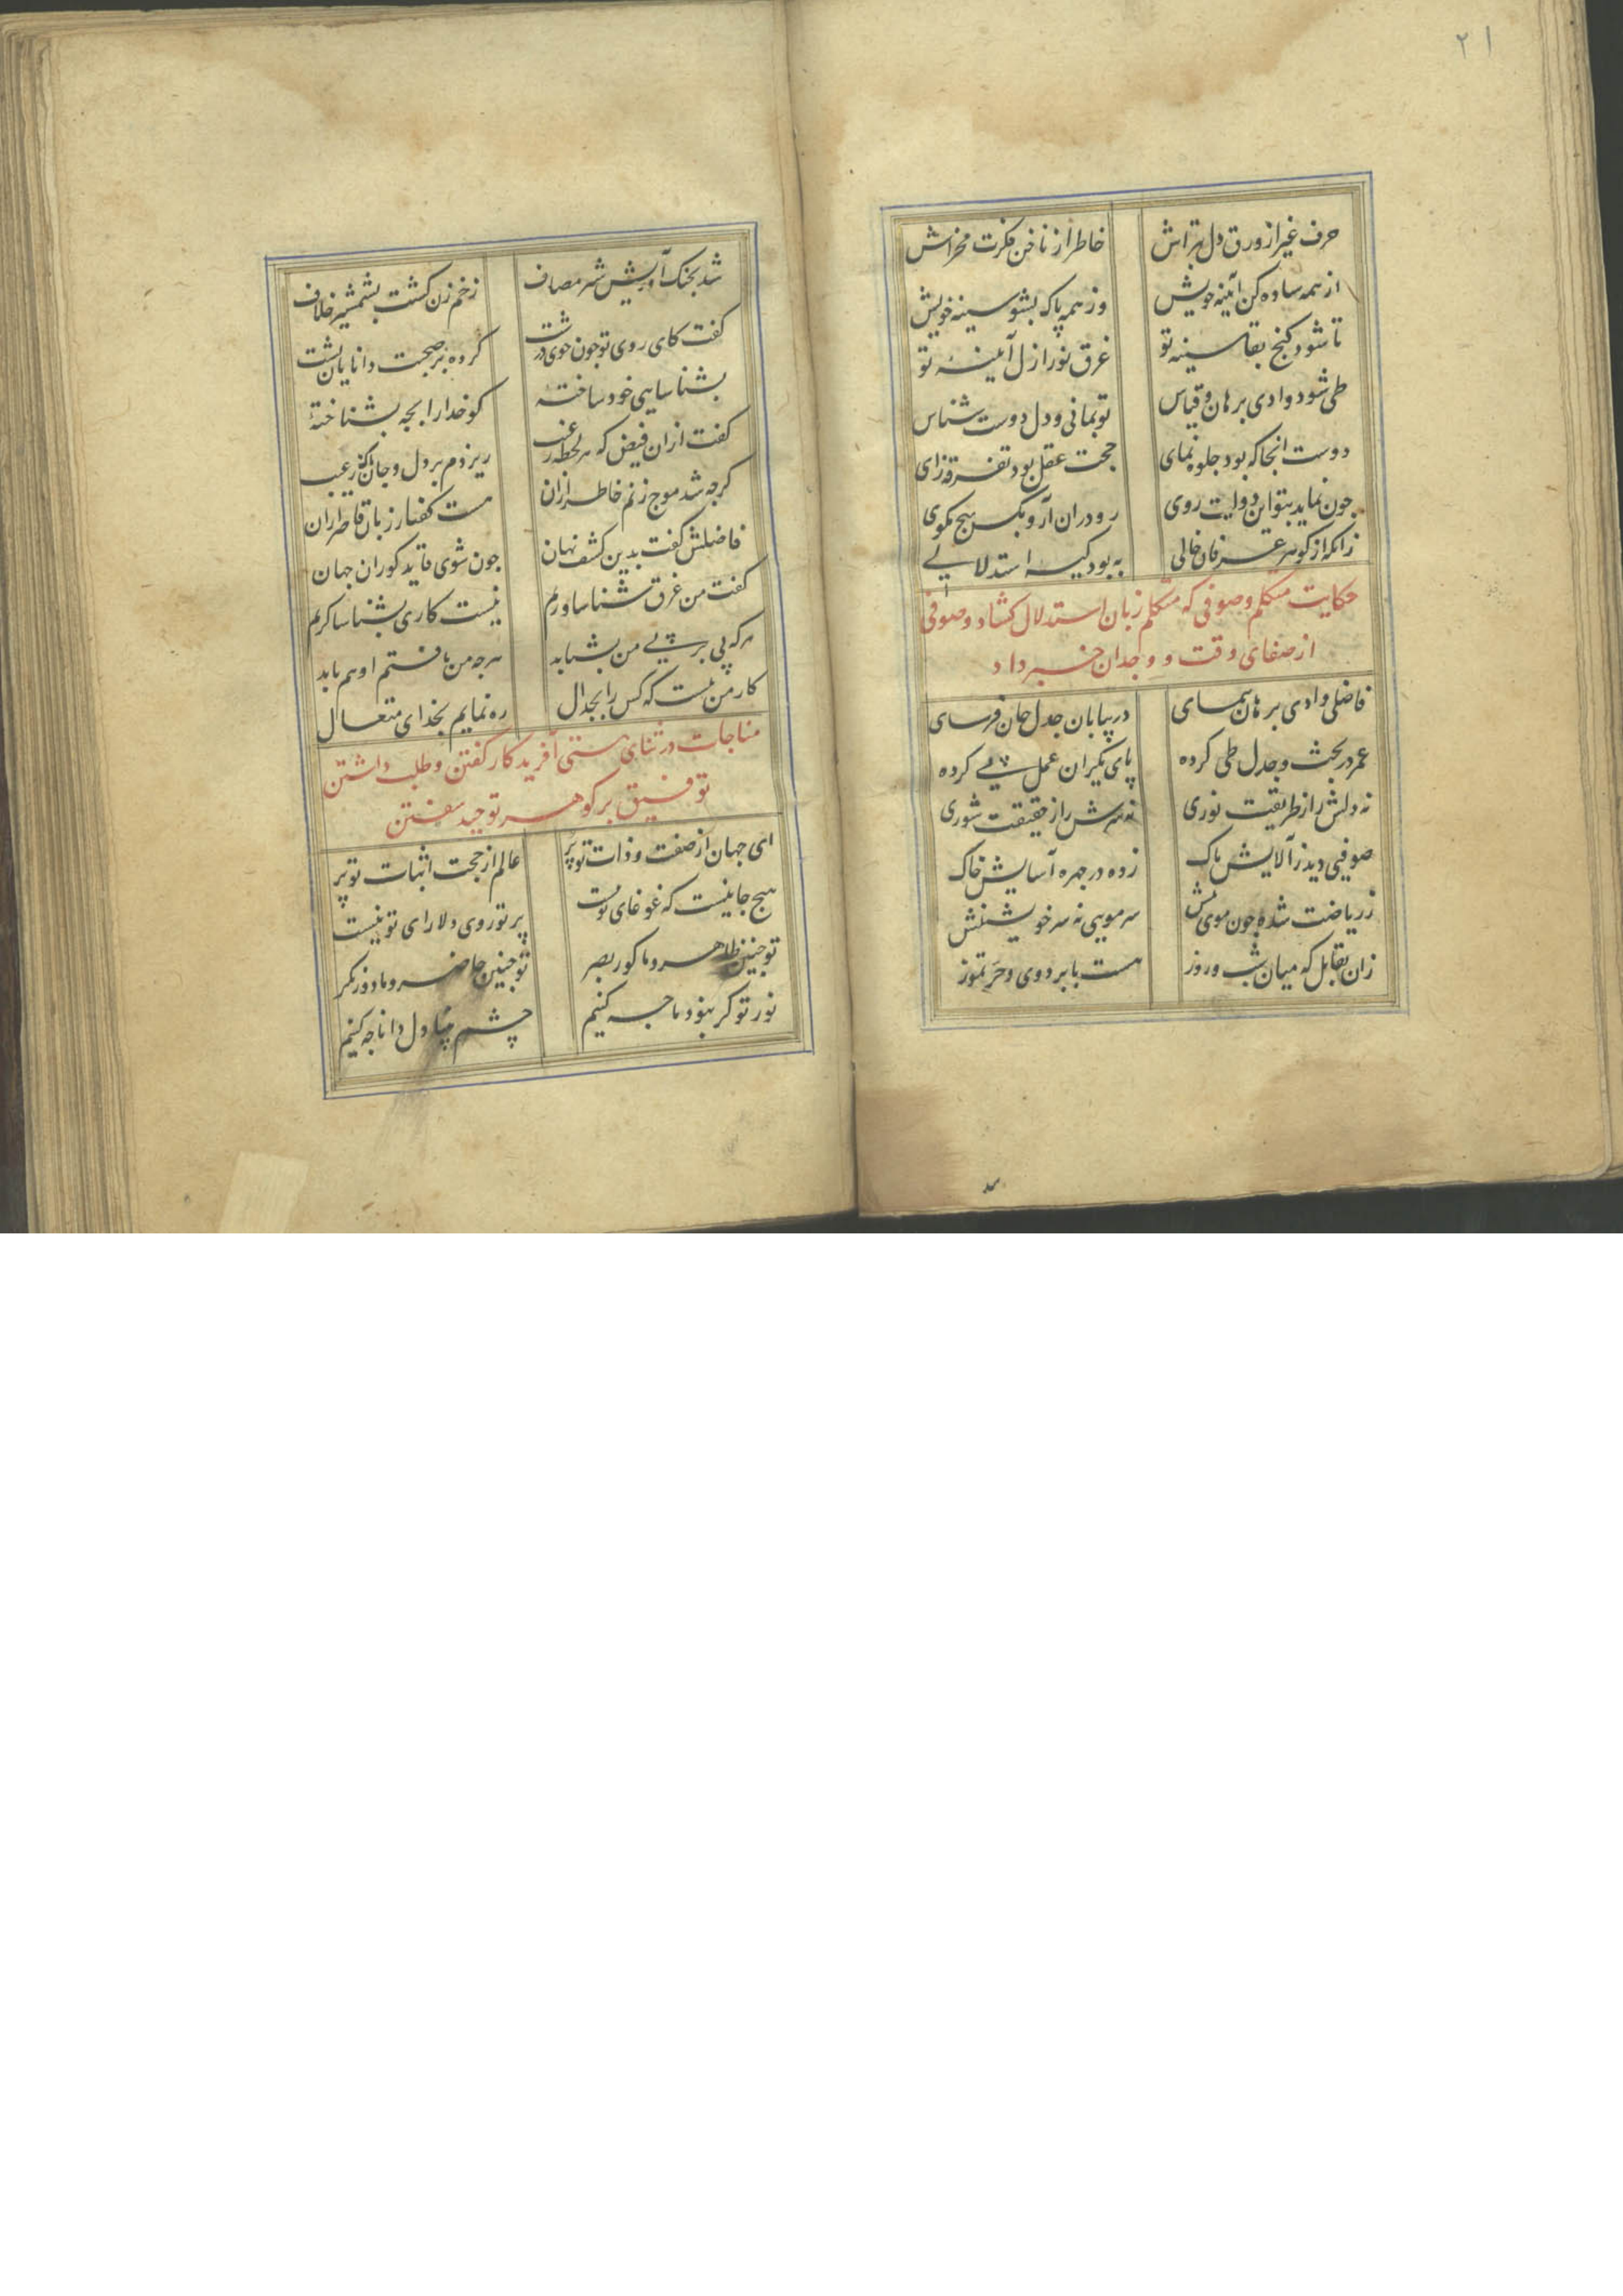 ۲۱
حرف غیر از ورق دل بتراش خاطر از ناخن فکرت مخراش
از همه ساده کن آینه خویش وز همه پاک بشو سینه خویش
تا شود کنج بقا سینه تو غرق نور ازل آیینه تو
طی شود وادی برهان و قیاس تو بمانی و دل دوست شناس
دوست انجا که بود جلوه نمای حجت عقل بود تفرقه زای
جون نماید بتو این دولت روی رو در آن آر و بکس هیج مکوی
زانکه از کوهر عرفان خالی به بود کیسه استدلالی
حکایت متکلم و صوفی که متکلم زبان استدلال کشاد و صوفی
از صفای وقت و وجدان خبر داد
فاضلی وادی برهان پیمای در بیابان جدل جان فرسای
عمر در بحث و جدل طی کرده پای یکران عمل پی کرده
نه دلش را ز طریقت نوری نه سرش را ز حقیقت شوری
صوفیی دید ز آلایش پاک زده در جهره آسایش خاک
ز ریاضت شده جون موی تنش سر مویی نه سر خویشتنش
زان تقابل که میان شب و روز هست یا برد دی و حر تموز
شد بجنک آوریش شهر مصاف زخم زن کشت بشمشیر خلاف
کفت کای روی تو جون خوی درشت کرده بر صحبت دانایان پشت
بشناسایی خود ساخته کو خدا را بجه بشناخته
کفت از آن فیض که هر لحظه ز غیب ریزدم بر دل و جان
کرجه شد موج زنم خاطر ازان هست کفتار زبان قاصر ازان
فاضلش کفت بدین کشف نهان جون شوی قاید کوران جهان
کفت من غرق شناساورم نیست کاری بشناساکرم
هرکه پی بر پی من بشتابد هرجه من یافتم او هم یابد
کار من نیست که کس را بجدال ره نمایم بخدای متعال
مناجات در ثنای هستی آفریدکار کفتن و طلب داشتن
توفیق بر کوهر توحید سفتن
ای جهان از صفت و ذات تو پر عالم از حجت اثبات تو پر
هیج جا نیست که غوغای تو نیست پرتو روی دلارای تو نیست
تو جنین ظاهر و ما کور بصر تو جنین حاضر و ما دور نکر
نور تو کر نبود ما جه کنیم چشم بینا و دل دانا جه کنیم